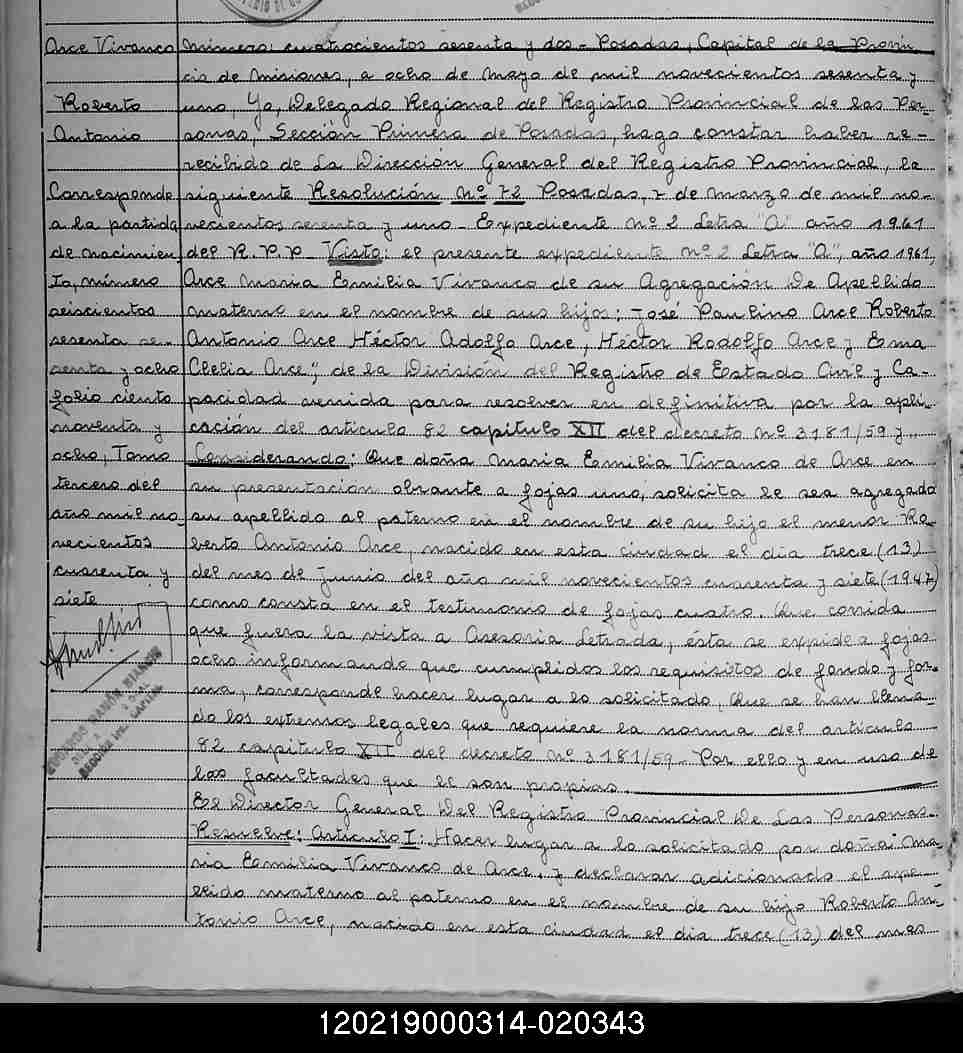 Arce Vivanco
Roberto
Antonio
Corresponde
a la partida
de nacimien
to, número
seiscientos
sesenta se-
senta y ocho
folio ciento
noventa y
ocho, Tomo
tercero del
año mil no-
vecientos
cuarenta y
siete
número: cuatrocientos sesenta y dos - Posadas, Capital de la Provin
cia de Misiones, a ocho de mayo de mil novecientos sesenta y
uno, Yo, Delegado Regional del Registro Provincial de las Per-
sonas, Sección Primera de Posadas, hago constar haber re-
recibido de La Dirección General del Registro Provincial, la
siguiente Resolución Nº 72 Posadas, 7 de marzo de mil no-
vecientos sesenta y uno - Expediente nº 2 Letra "A" año 1961
del R.P.P. Visto: el presente expediente nº 2 Letra "A", año 1961,
Arce Maria Emilia Vivanco de su Agregación De Apellido
materno en el nombre de sus hijos; José Paulino Arce Roberto
Antonio Arce Héctor Adolfo Arce, Héctor Rodolfo Arce y Ema
Clelia Arce"; de la División del Registro de Estado Civil y Ca-
pacidad venida para resolver en definitiva por la apli-
cación del artículo 82 capitulo XII del decreto nº 3181/59 y...
Considerando: Que doña Maria Emilia Vivanco de Arce en
su presentación obrante a fojas uno, solicita le sea agregado
su apellido al paterno en el nombre de su hijo el menor Ro-
berto Antonio Arce, nacido en esta ciudad el dia trece (13)
del mes de Junio del año mil novecientos cuarenta y siete (1947)
como consta en el testimonio de fojas cuatro. Que corrida
que fuera la vista a Asesoria Letrada, ésta se expide a fojas
ocho informando que cumplidos los requisitos de fondo y for-
ma, corresponde hacer lugar a lo solicitado, Que se han llena-
do los extremos legales que requiere la norma del artículo
82 capitulo XII del decreto nº 3181/59 - Por ello y en uso de
las facultades que le son propias.
El Director General Del Registro Provincial De Las Personas-
Resuelve: Artículo I: Hacer lugar a lo solicitado por doña Ma-
ria Emilia Vivanco de Arce, y declarar adicionado el ape-
llido materno al paterno en el nombre de su hijo Roberto An-
tonio Arce, nacido en esta ciudad el dia trece (13) del mes
120219000314-020343